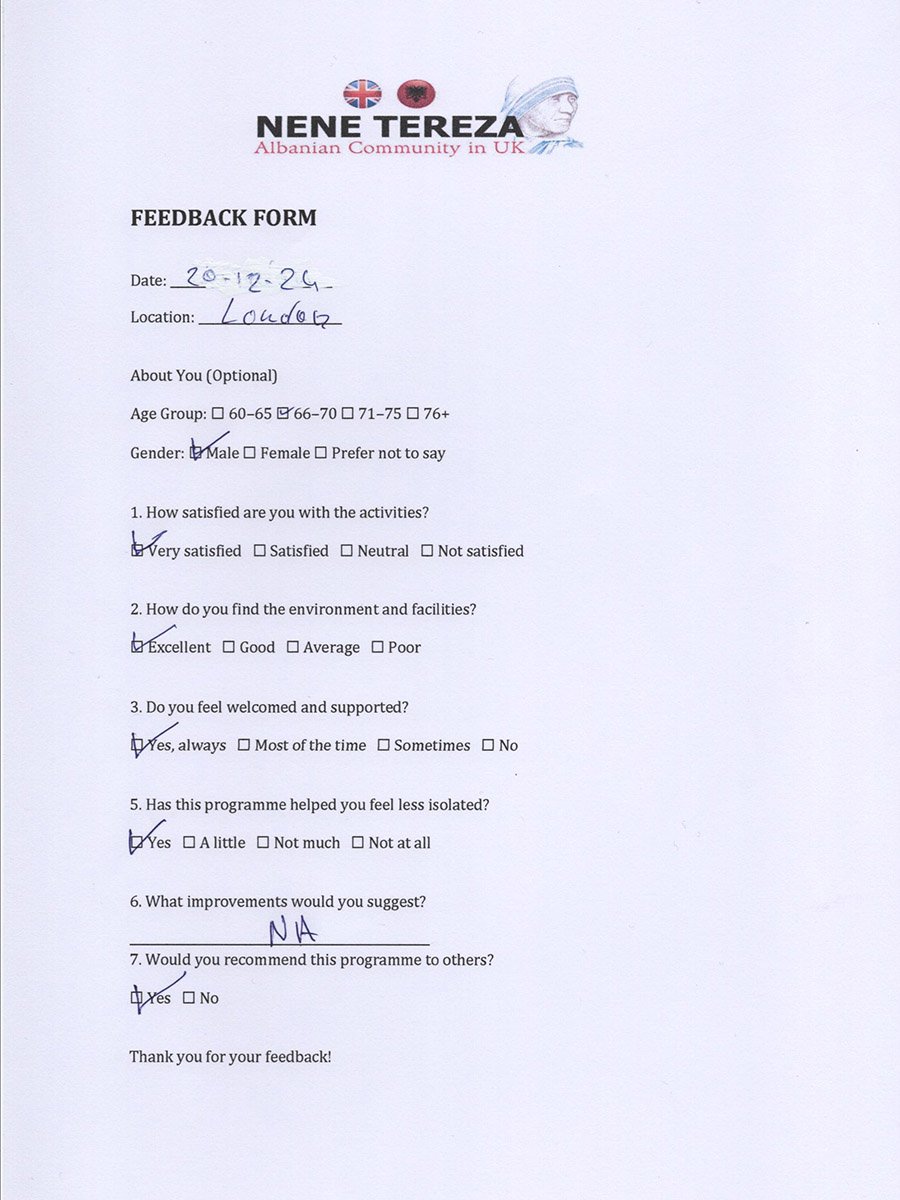 NENE TEREZA
Albanian Community in UK
FEEDBACK FORM
Date: 20-12-24
Location: London
About You (Optional)
Age Group: ☐ 60–65 ☑ 66–70 ☐ 71–75 ☐ 76+
Gender: ☑ Male ☐ Female ☐ Prefer not to say
1. How satisfied are you with the activities?
☑ Very satisfied ☐ Satisfied ☐ Neutral ☐ Not satisfied
2. How do you find the environment and facilities?
☑ Excellent ☐ Good ☐ Average ☐ Poor
3. Do you feel welcomed and supported?
☑ Yes, always ☐ Most of the time ☐ Sometimes ☐ No
5. Has this programme helped you feel less isolated?
☑ Yes ☐ A little ☐ Not much ☐ Not at all
6. What improvements would you suggest?
NA
7. Would you recommend this programme to others?
☑ Yes ☐ No
Thank you for your feedback!